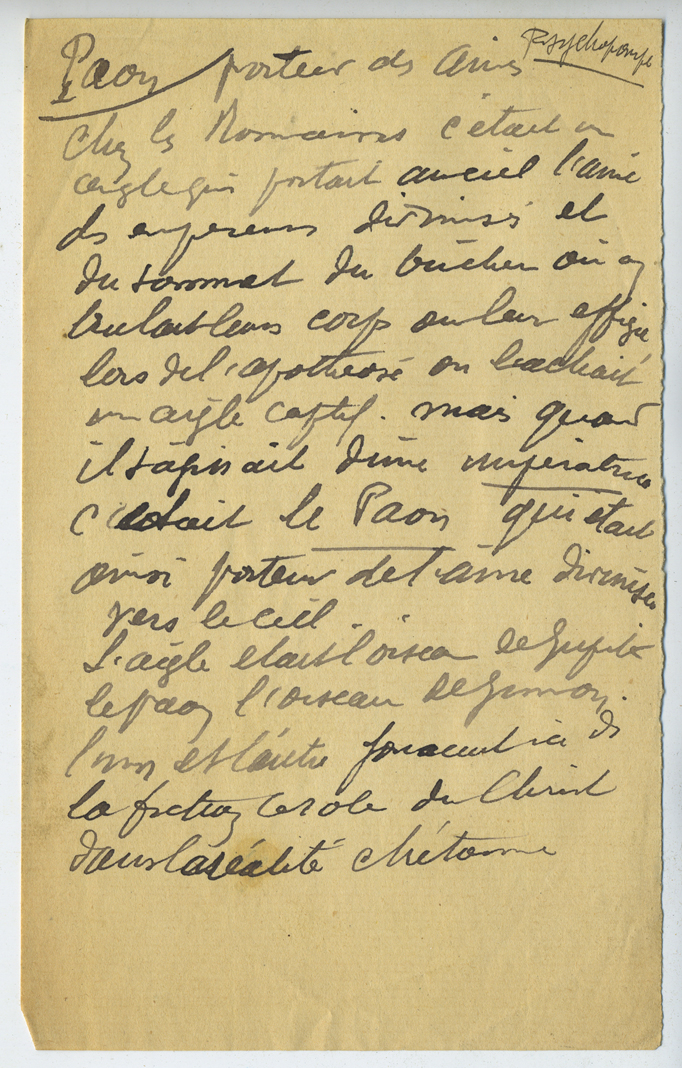 Psychopompe
Paon porteur des âmes
Chez les Romains c'était un
aigle qui portait au ciel l'âme
des empereurs divinisés et
du sommet du bûcher où on
brulait leurs corps ou leur effigie
lors de l'apothéose on lachait
un aigle captif. mais quand
il s'agissait d'une impératrice
c'était le Paon qui était
ainsi porteur de l'âme divinisée
vers le ciel.
L'aigle etait l'oiseau de Jupiter
le paon l'oiseau de Junon.
l'un et l'autre jouaient ici ds
la fiction le role du Christ
dans la réalité chrétienne